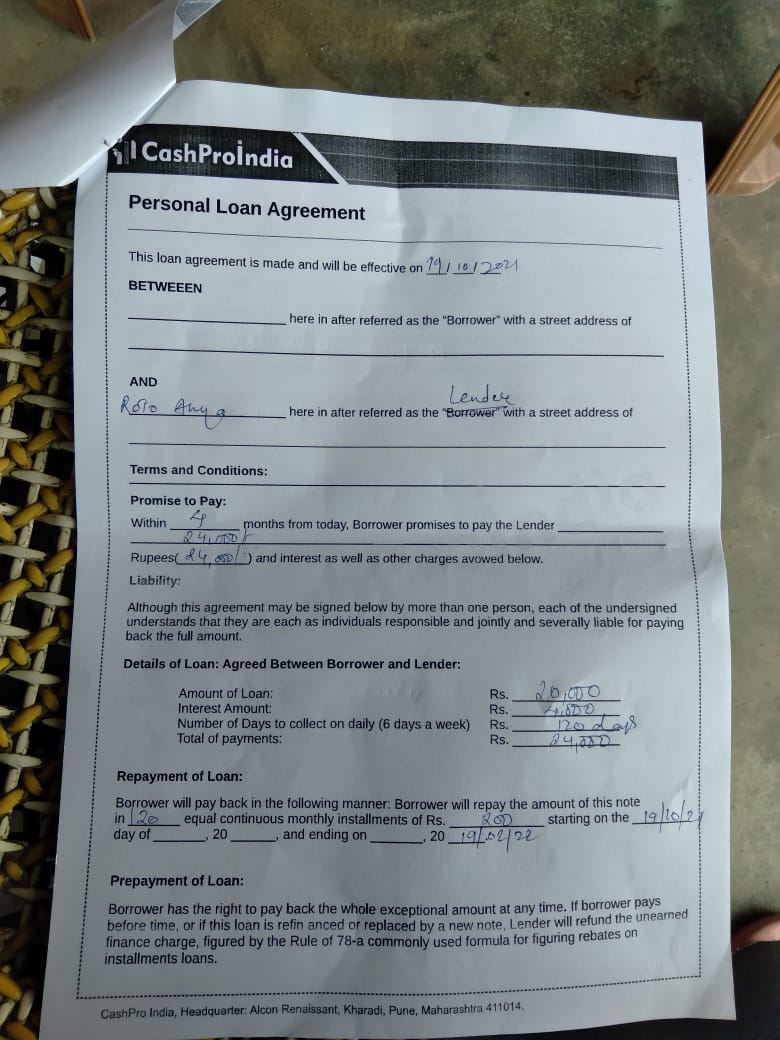 CashProIndia
Personal Loan Agreement
This loan agreement is made and will be effective on 19/10/2021
BETWEEEN
here in after referred as the "Borrower" with a street address of
AND
Lender
here in after referred as the "Borrower" with a street address of
Terms and Conditions:
Promise to Pay:
Within 4 months from today, Borrower promises to pay the Lender
24,000/-
Rupees( 24,000/- ) and interest as well as other charges avowed below.
Liability:
Although this agreement may be signed below by more than one person, each of the undersigned
understands that they are each as individuals responsible and jointly and severally liable for paying
back the full amount.
Details of Loan: Agreed Between Borrower and Lender:
Amount of Loan: Rs. 20,000
Interest Amount: Rs. 4,000
Number of Days to collect on daily (6 days a week) Rs. 120 days
Total of payments: Rs. 24,000
Repayment of Loan:
Borrower will pay back in the following manner: Borrower will repay the amount of this note
in 120 equal continuous monthly installments of Rs. 200 starting on the 19/10/21
day of , 20 , and ending on , 20 19/02/22
Prepayment of Loan:
Borrower has the right to pay back the whole exceptional amount at any time. If borrower pays
before time, or if this loan is refin anced or replaced by a new note, Lender will refund the unearned
finance charge, figured by the Rule of 78-a commonly used formula for figuring rebates on
installments loans.
CashPro India, Headquarter: Alcon Renaissant, Kharadi, Pune, Maharashtra 411014.